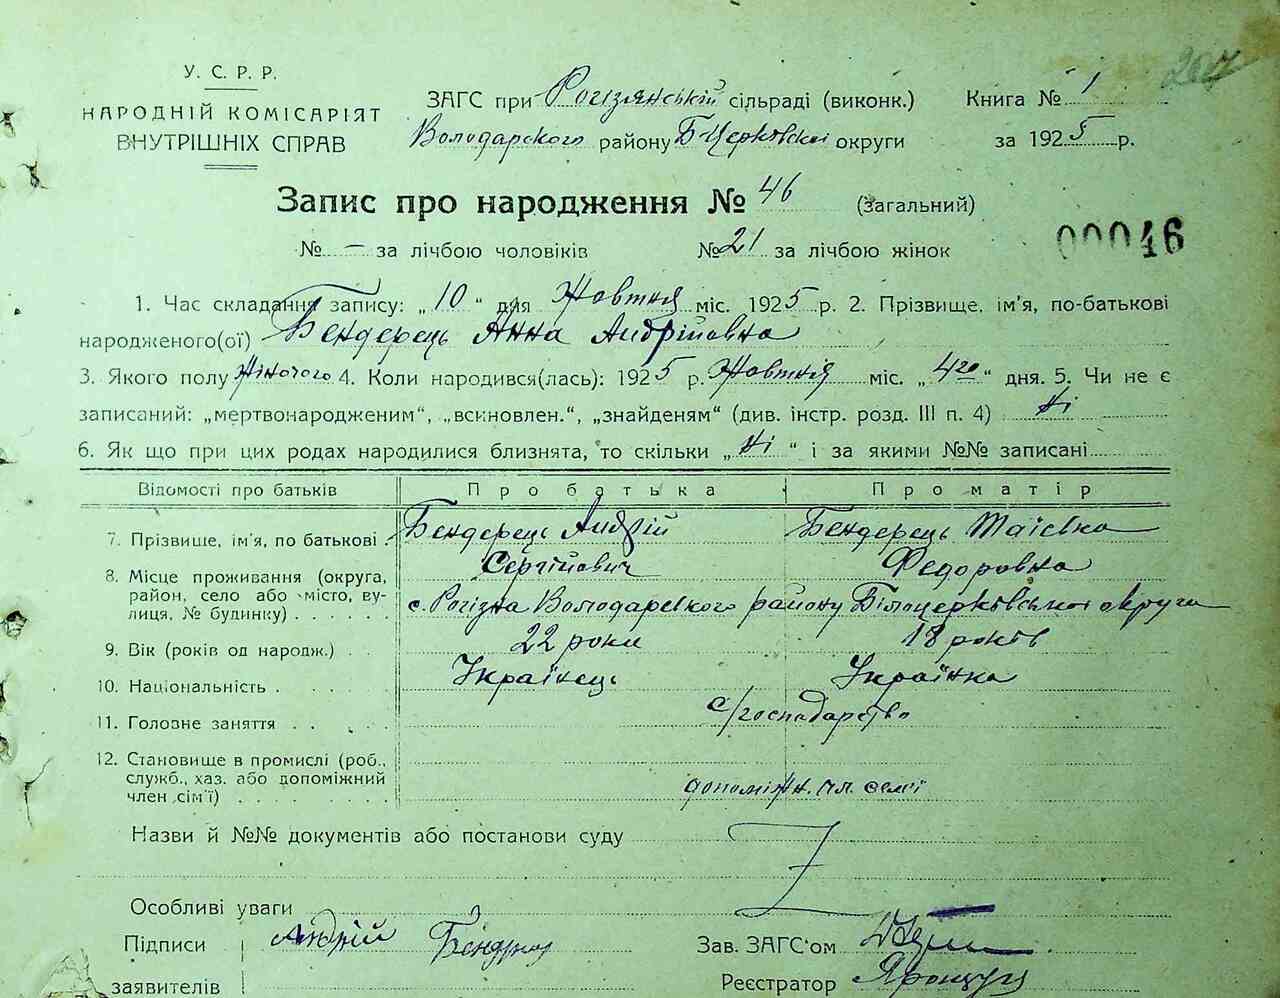 У. С. Р. Р.
НАРОДНІЙ КОМІСАРІЯТ
ВНУТРІШНІХ СПРАВ
ЗАГС при Рогізянській сільраді (виконк.)
Володарского району Б-Церківскої округи
Книга № 1
за 1925 р.
207
Запис про народження № 46 (загальний)
№ – за лічбою чоловіків № 21 за лічбою жінок
00046
1. Час складання запису: „10“ дня Жовтня міс. 1925 р. 2. Прізвище, ім'я, по-батькові
народженого(ої) Бендерець Анна Андріївна
3. Якого полу жіночого 4. Коли народився(лась): 1925 р. Жовтня міс. „4го“ дня. 5. Чи не є
записаний: „мертвонародженим“, „всиновлен.“, „знайденям“ (див. інстр. розд. III п. 4) Ні
6. Як що при цих родах народилися близнята, то скільки „Ні“ і за якими №№ записані
Відомості про батьків Про батька Про матір
7. Прізвище, ім'я, по батькові Бендерець Андрій Бендерець Таісівка
Сергійович Федоровна
8. Місце проживання (округа,
район, село або місто, ву-
лиця, № будинку) с. Рогізна Володарского району Білоцерківської округи
9. Вік (років од народж.) 22 роки 18 років
10. Національність Українець Українка
11. Головне заняття с/господарство
12. Становище в промислі (роб.,
служб., хаз. або допоміжний
член сім'ї) допоміжн. чл. семї
Назви й №№ документів або постанови суду
Особливі уваги
Підписи Андрій
заявителів
Зав. ЗАГС'ом
Реєстратор